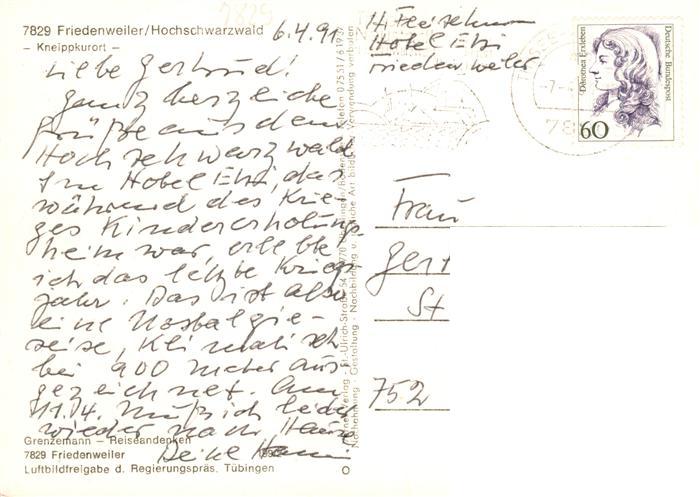 7829 Friedenweiler/Hochschwarzwald
– Kneippkurort –
6.4.91
Liebe Gertrud!
Ganz herzliche
Grüße aus dem
Hochschwarzwald
Im Hotel Ebi, das
während des Krie-
ges Kindererholungs-
heim war, erlebte
ich das letzte Kriegs-
jahr. Das ist also
eine Nostalgie-
reise, Klimatisch
bei 900 Meter aus-
gezeichnet. Am
11.4. muß ich leider
wieder nach Hause
Deine
Grenzemann – Reiseandenken
7829 Friedenweiler
Luftbildfreigabe d. Regierungspräs. Tübingen
St.-Ulrich-Straße
Nachbildung
Gestaltung
Verwendung verboten
H.
Hotel Ebi
Friedenweiler
Dorothea Erxleben
Deutsche Bundespost
60
78
Frau
Gert
St
752